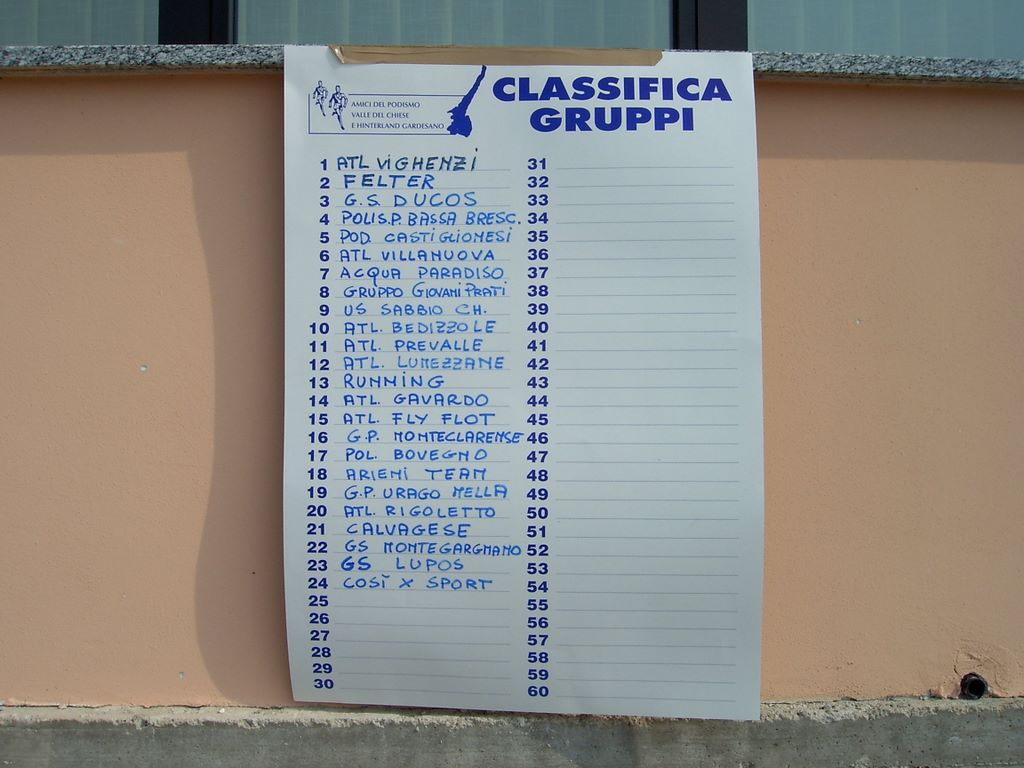 AMICI DEL PODISMO
VALLE DEL CHIESE
E HINTERLAND GARDESANO
CLASSIFICA
GRUPPI
1 ATL VIGHENZI
2 FELTER
3 G.S. DUCOS
4 POLIS.P. BASSA BRESC.
5 POD. CASTIGLIONESI
6 ATL VILLANUOVA
7 ACQUA PARADISO
8 GRUPPO GIOVANI PRATI
9 US SABBIO CH.
10 ATL. BEDIZZOLE
11 ATL. PREVALLE
12 ATL. LUMEZZANE
13 RUNNING
14 ATL. GAVARDO
15 ATL. FLY FLOT
16 G.P. MONTECLARENSE
17 POL. BOVEGNO
18 ARIENI TEAM
19 G.P. URAGO MELLA
20 ATL. RIGOLETTO
21 CALVAGESE
22 GS MONTEGARGNANO
23 GS LUPOS
24 COSÌ X SPORT
25
26
27
28
29
30
31
32
33
34
35
36
37
38
39
40
41
42
43
44
45
46
47
48
49
50
51
52
53
54
55
56
57
58
59
60